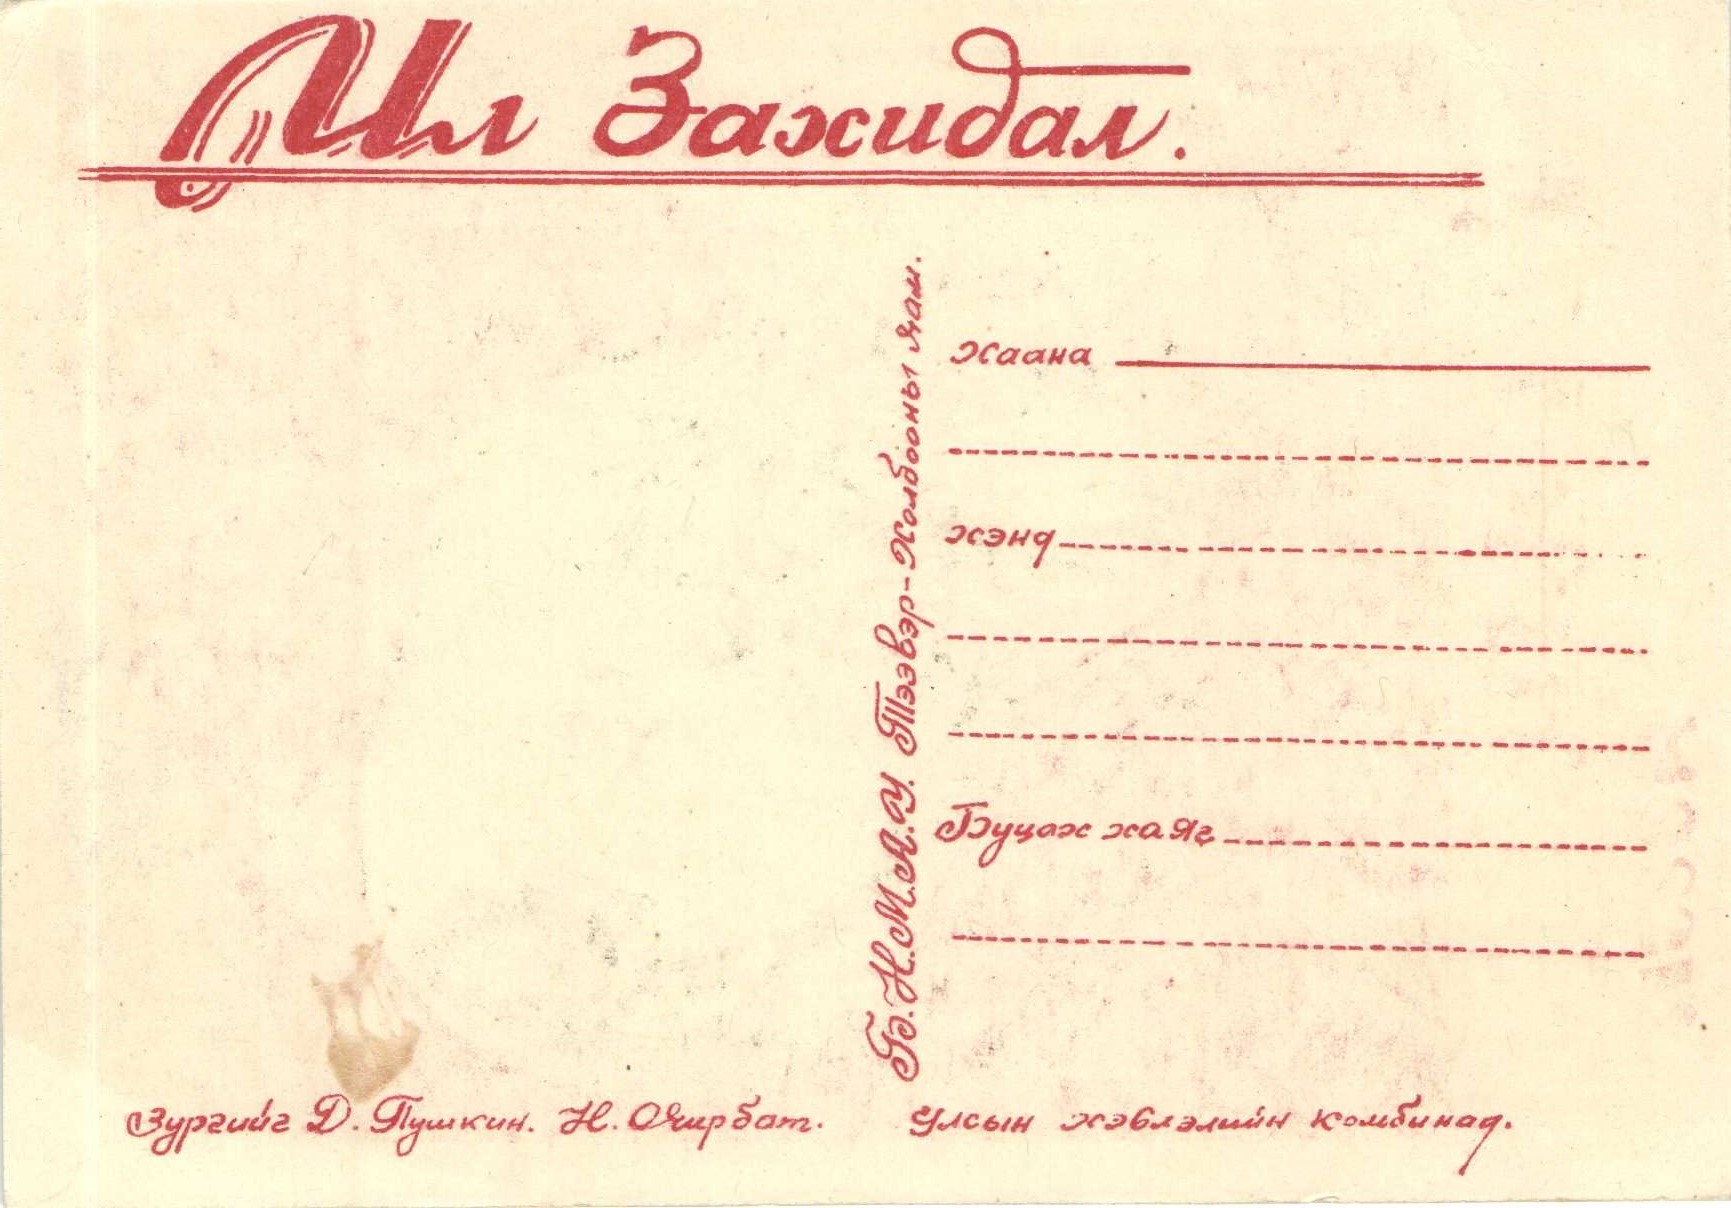 Ил Захидал.
хаана
хэнд
Буцах хаяг
Б.Н.М.А.У. Тээвэр-Холбооны яам.
Зургийг Д. Пушкин. Н. Очирбат.
Улсын хэвлэлийн комбинад.